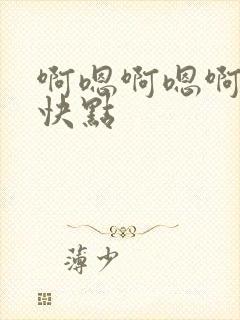 啊嗯啊嗯啊
快點
薄少